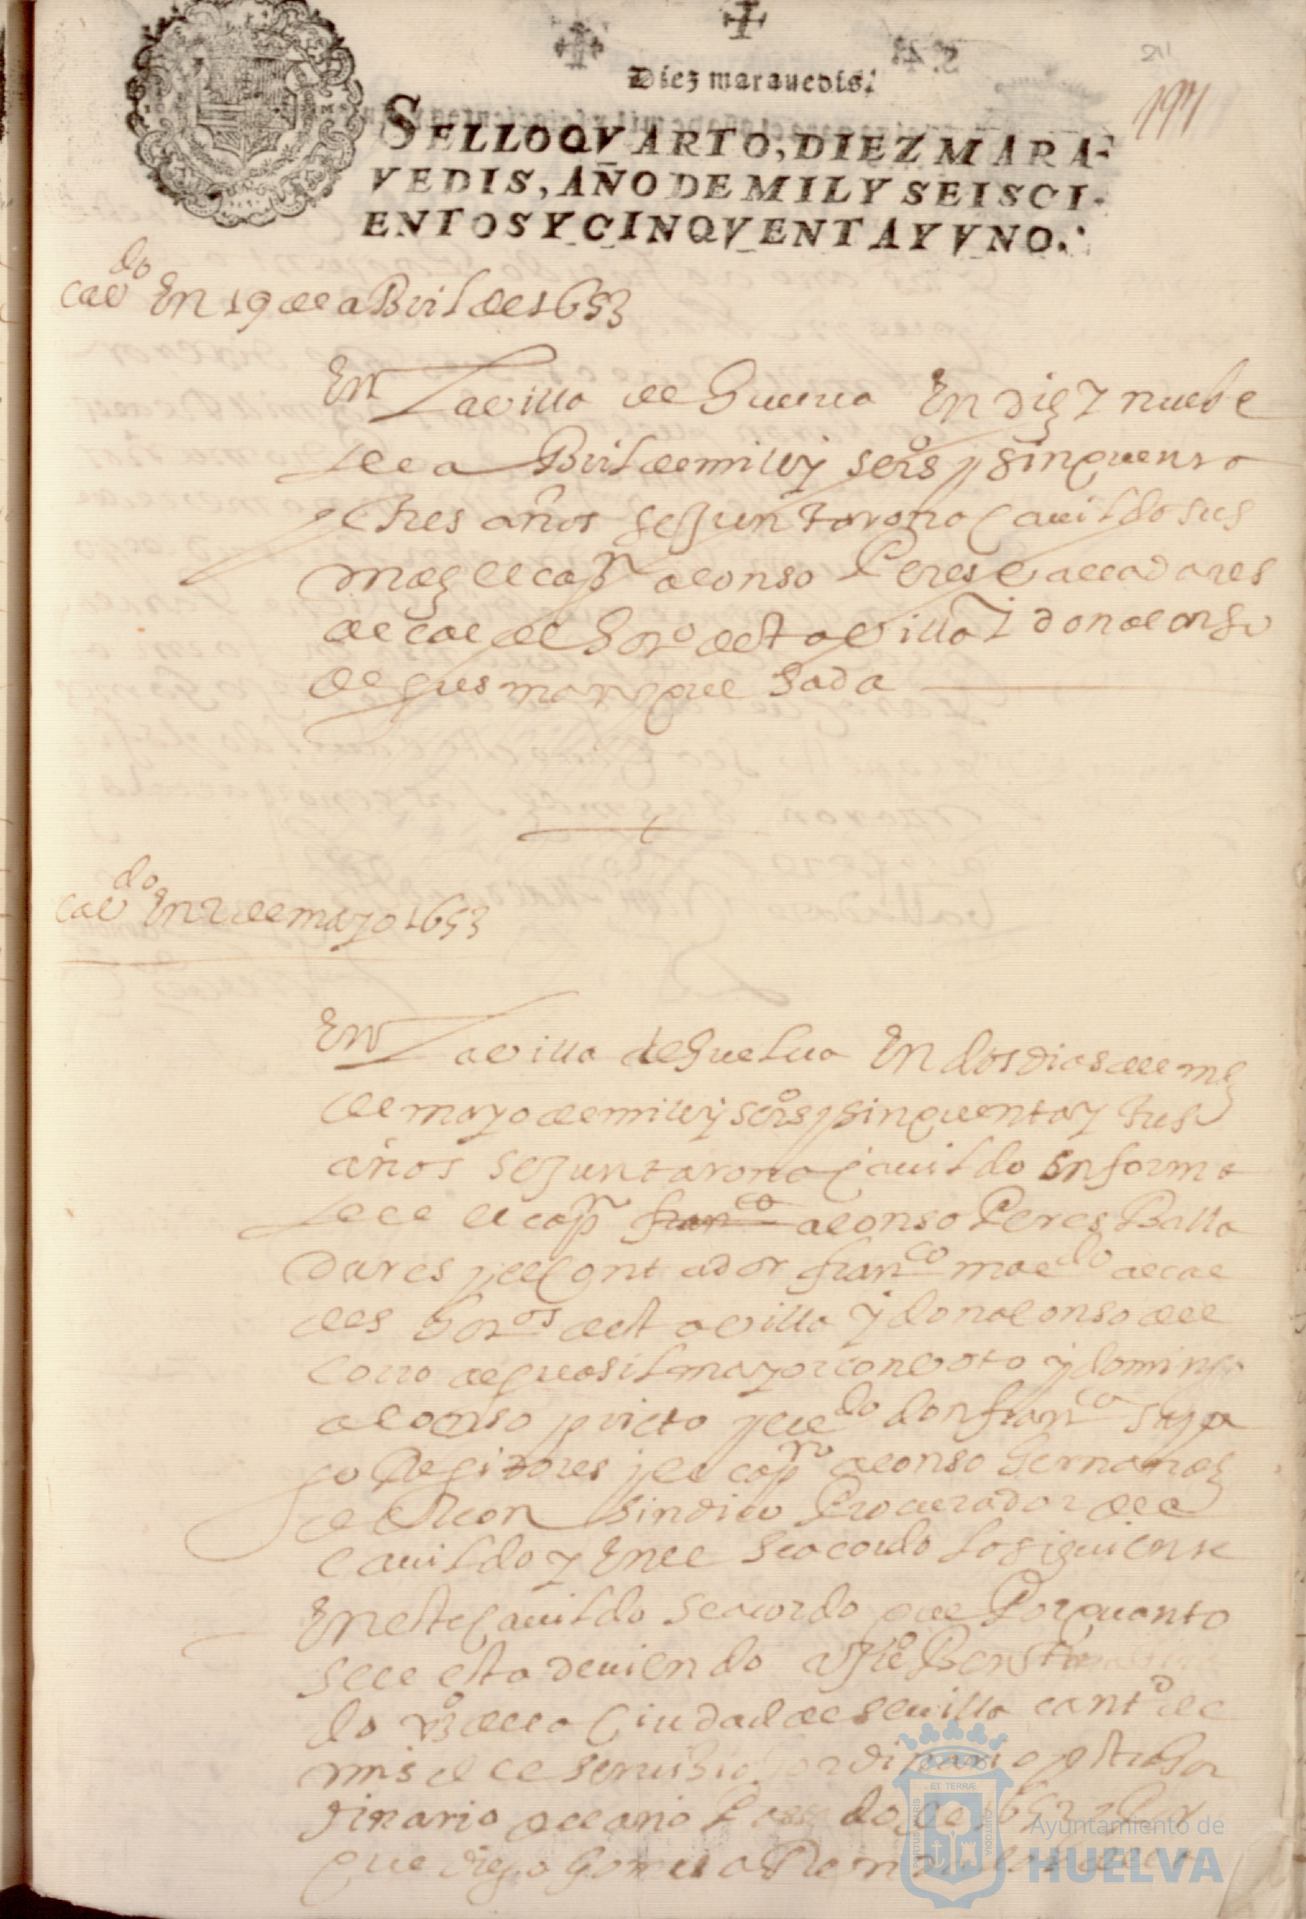 Diez marauedis.
211
197
SELLO QVARTO, DIEZ MARA-
VEDIS, AÑO DE MIL Y SEISCI-
ENTOS Y CINQVENTA Y VNO.
cavdo En 19 de aBril de 1653
En la villa de Guelva En diez y nuebe
de aBril de mill y seiso y sinquenta
y tres años se juntaron a cavildo sus
mds el capn alonso Peres valladares
alcalde horo desta villa y don alonso
de gusman quesada
cavdo En 2 de mayo 1653
En la villa de Guelva En dos dias del mes
de mayo de mill y seiso y sinquenta y tres
años se juntaron a cavildo en forma
el capn franco alonso Peres Balla
dares y el contador franco maldo alcal
des horos desta villa y don alonso del
corro alguasil mayor con voto y domingo
alonso prieto y don franco
Regidores y el capn alonso hernandes
de Alcon sindico Procurador del
cavildo y En el se acordo lo siguiente
En este cavildo se acordo que Por quanto
se le esta deviendo a
do vo de la ciudad de sevilla cantd de
mrs del servisio ordinario y extrahor
dinario del año Passado de 1652 y Por
que diego gomes
Ayuntamiento de
HUELVA